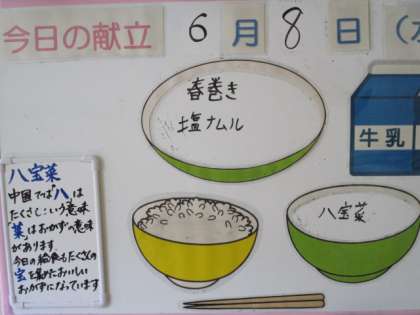 今日の献立 6月8日(水
春巻き
塩ナムル
牛乳
八宝菜
八宝菜
中国では"八"は
たくさんという意味
"菜"はおかずの意味
があります
今日の給食もたくさんの
宝を集めたおいしい
おかずになっています